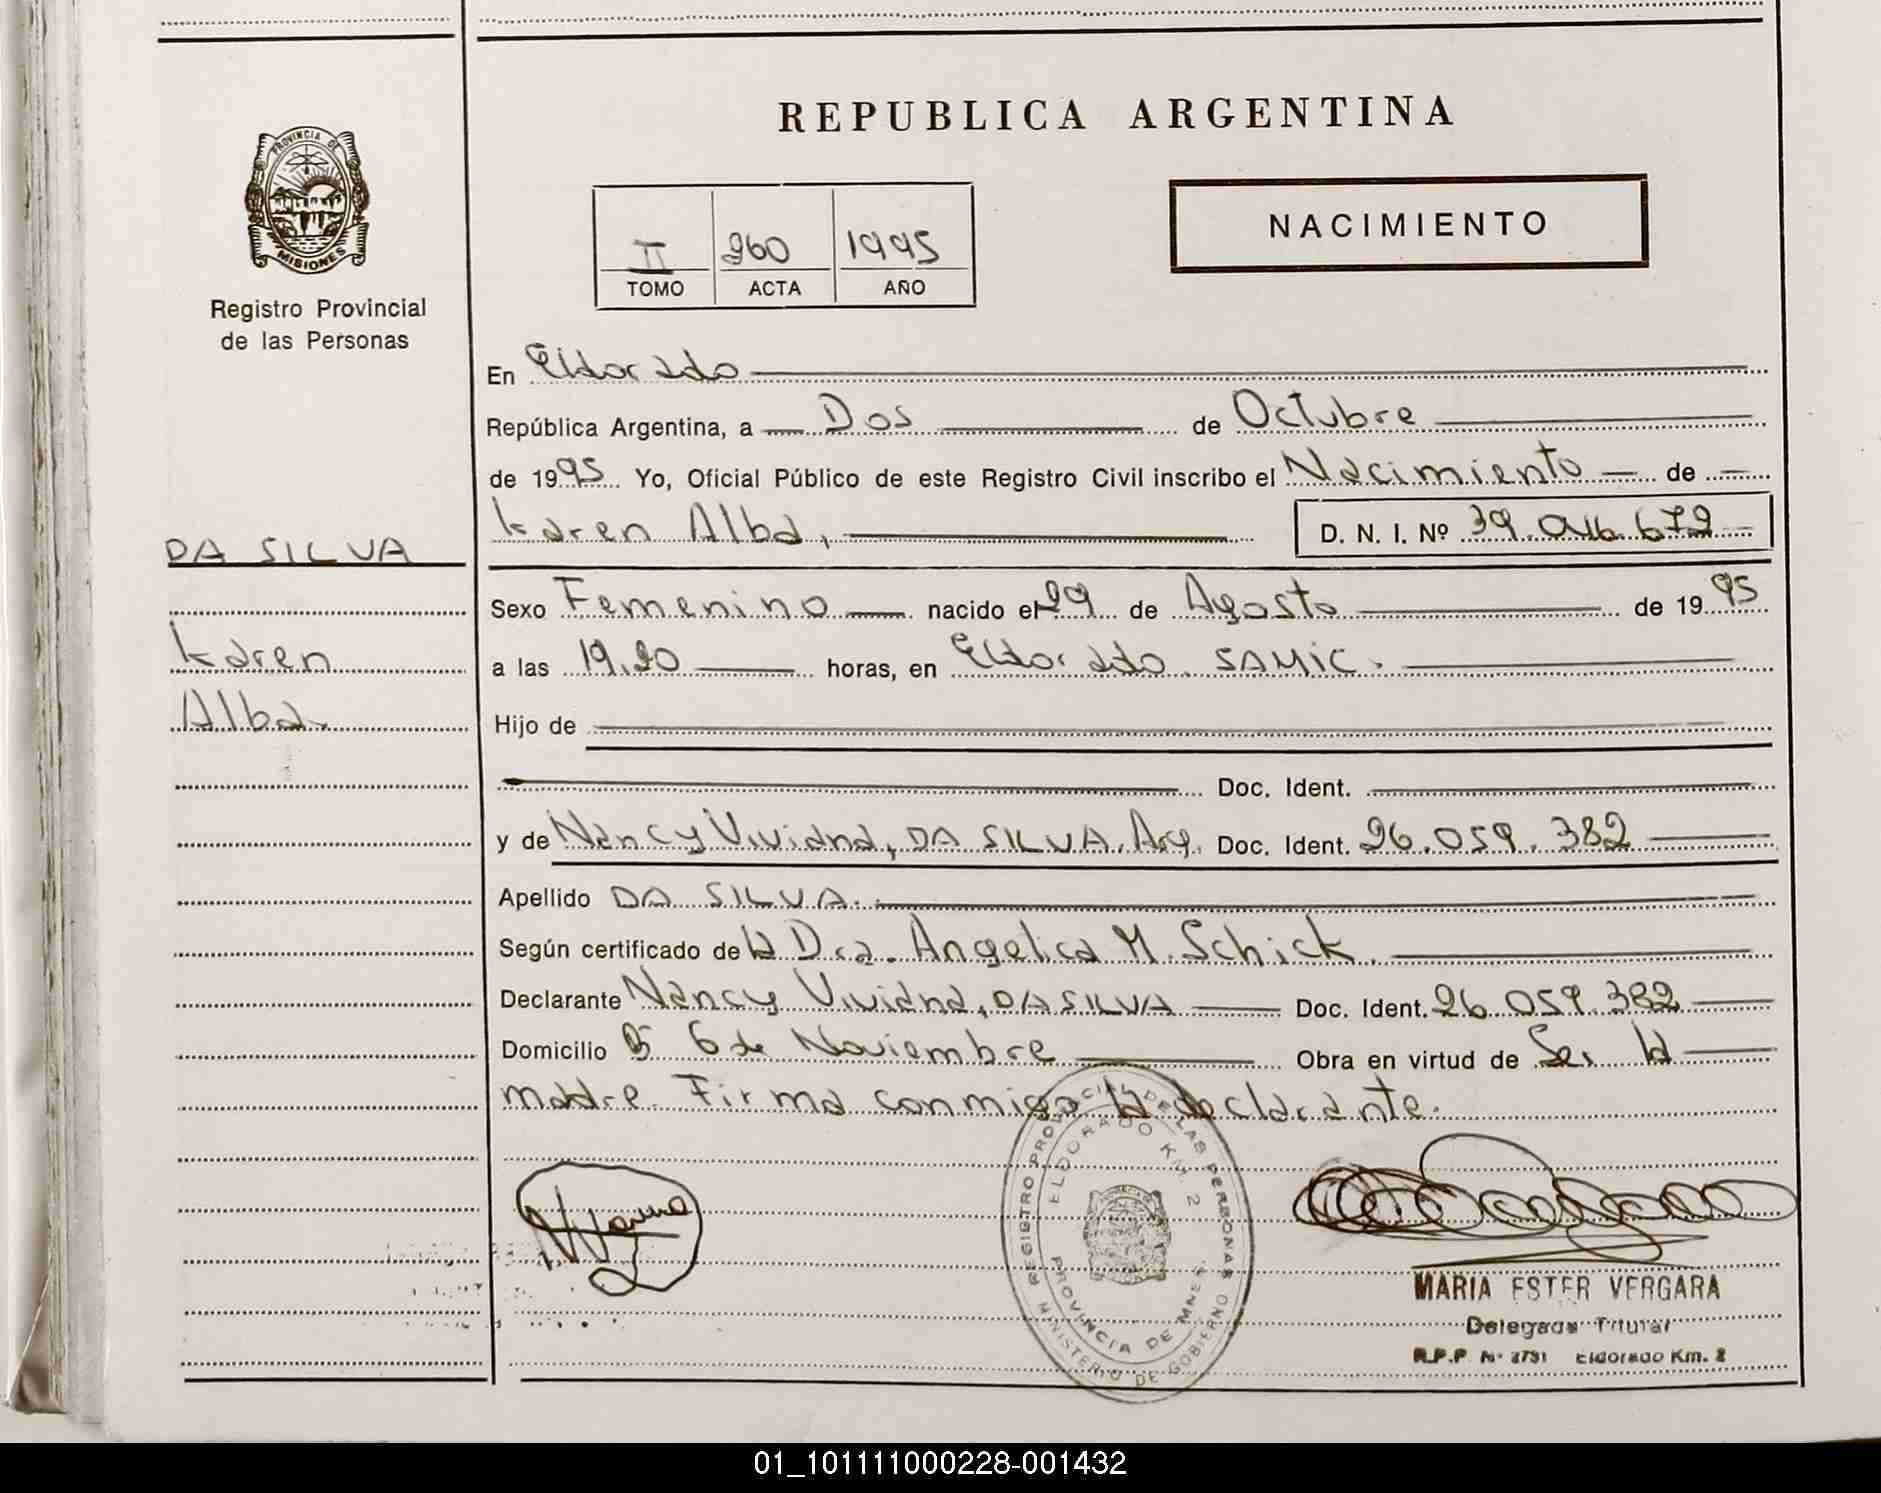 REPUBLICA ARGENTINA
NACIMIENTO
PROVINCIA DE
MISIONES
Registro Provincial
de las Personas
II 260 1995
TOMO ACTA AÑO
En Eldorado
República Argentina, a Dos de Octubre
de 1995 Yo, Oficial Público de este Registro Civil inscribo el Nacimiento de
Karen Alba, D. N. I. Nº 39.046.672
DA SILVA
Karen
Alba.
Sexo Femenino nacido el 29 de Agosto de 1995
a las 19.20 horas, en Eldorado. SAMIC.
Hijo de
Doc. Ident.
y de Nancy Viviana, DA SILVA. Arg. Doc. Ident. 26.059.382
Apellido DA SILVA.
Según certificado de la Dra. Angelica M. Schick.
Declarante Nancy Viviana, DA SILVA Doc. Ident. 26.059.382
Domicilio Bº 6 de Noviembre Obra en virtud de Ser la
madre. Firma conmigo la declarante.
REGISTRO PROVINCIAL DE LAS PERSONAS
MINISTERIO DE GOBIERNO
ELDORADO KM. 2
PROVINCIA DE MNES.
MARIA ESTER VERGARA
Delegada Titular
R.P.P. Nº 2731 Eldorado Km. 2
01_101111000228-001432